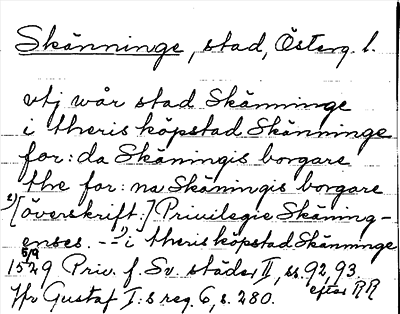 Skänninge, stad, Österg. l.
vtj wår stad Skänninge
i theris köpstad Skänninge
for:da Skäningis borgare
the for:na Skäningis borgare
2) [överskrift:] Privilegie Skäning-
enses. -- 1) i theris köpstad Skänninge
5/9
1529 Priv. f. Sv. städer II, ss. 92, 93.
efter RR
Jfr Gustaf I:s reg. 6, s. 280.